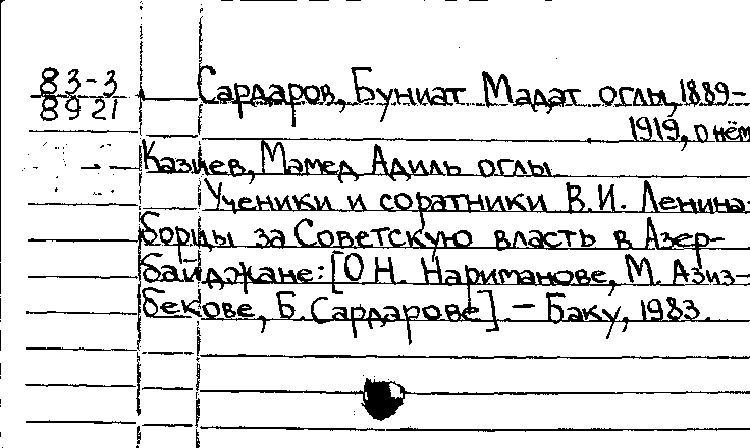 83-3
8921
Сардаров, Буниат Мадат оглы, 1889-
1919, о нём
Казиев, Мамед Адиль оглы
Ученики и соратники В.И. Ленина-
борцы за Советскую власть в Азер-
байджане: [О Н. Нариманове, М. Азиз-
бекове, Б. Сардарове]. - Баку, 1983.